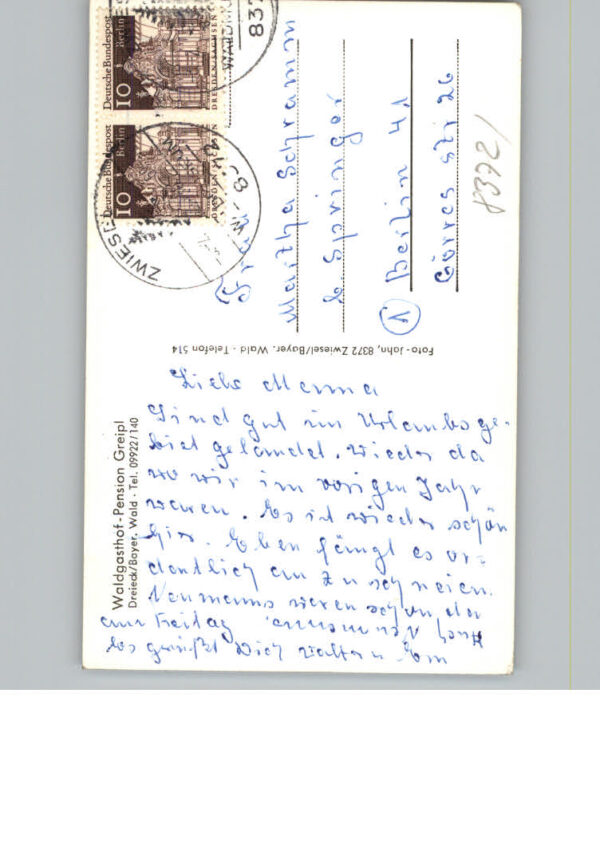 Deutsche Bundespost
Berlin
10
DRESDEN/SACHSEN
Deutsche Bundespost
Berlin
10
DRESDEN/SACHSEN
837
ZWIESEL
Frau
Martha Schramm
b Springer
1 Berlin 41
Görres str 26
8372/
Foto-Jahn, 8372 Zwiesel/Bayer. Wald - Telefon 514
Waldgasthof-Pension Greipl
Dreieck/Bayer. Wald - Tel. 09922/140
Liebe Mema
Sind gut im Urlaubsge-
biet gelandet. Wieder da
wo wir im vorigen Jahr
waren. Es ist wieder schön
hier. Eben fängt es or-
dentlich an zu schneien.
Neumanns waren schon da
am Freitag
Es grüßt Dich